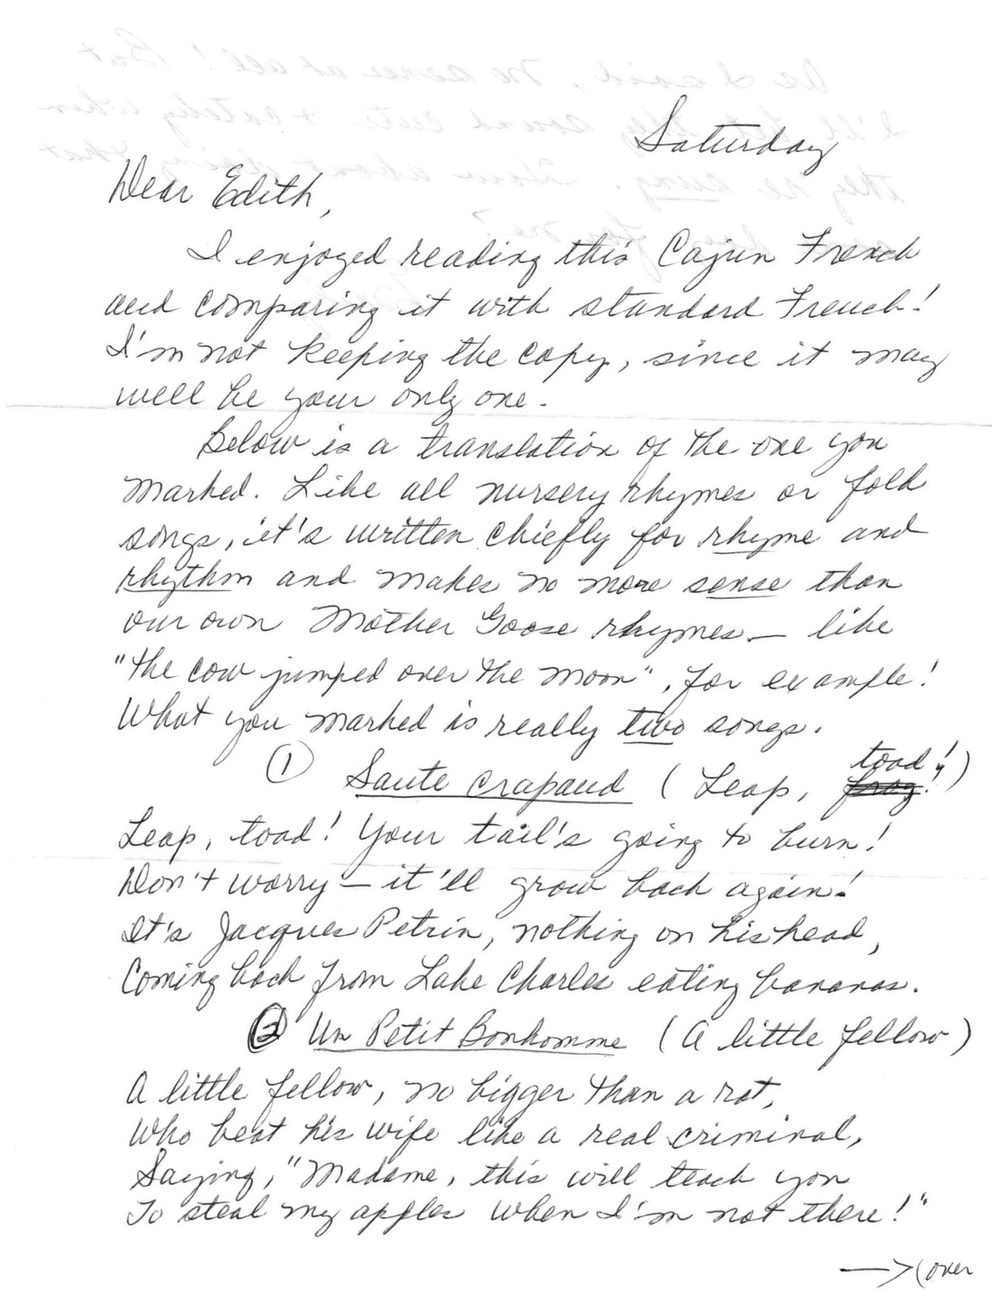 Saturday
Dear Edith,
I enjoyed reading this Cajun French
and comparing it with standard French!
I'm not keeping the copy, since it may
well be your only one.
Below is a translation of the one you
marked. Like all nursery rhymes or folk
songs, it's written chiefly for rhyme and
rhythm and makes no more sense than
our own Mother Goose rhymes — like
"the cow jumped over the moon", for example!
What you marked is really two songs.
① Saute crapaud (Leap, frog! toad!)
Leap, toad! Your tail's going to burn!
Don't worry — it'll grow back again!
It's Jacques Petrin, nothing on his head,
Coming back from Lake Charles eating bananas.
② Un Petit Bonhomme (A little fellow)
A little fellow, no bigger than a rat,
Who beat his wife like a real criminal,
Saying, "Madame, this will teach you
To steal my apples when I'm not there!"
→ (over